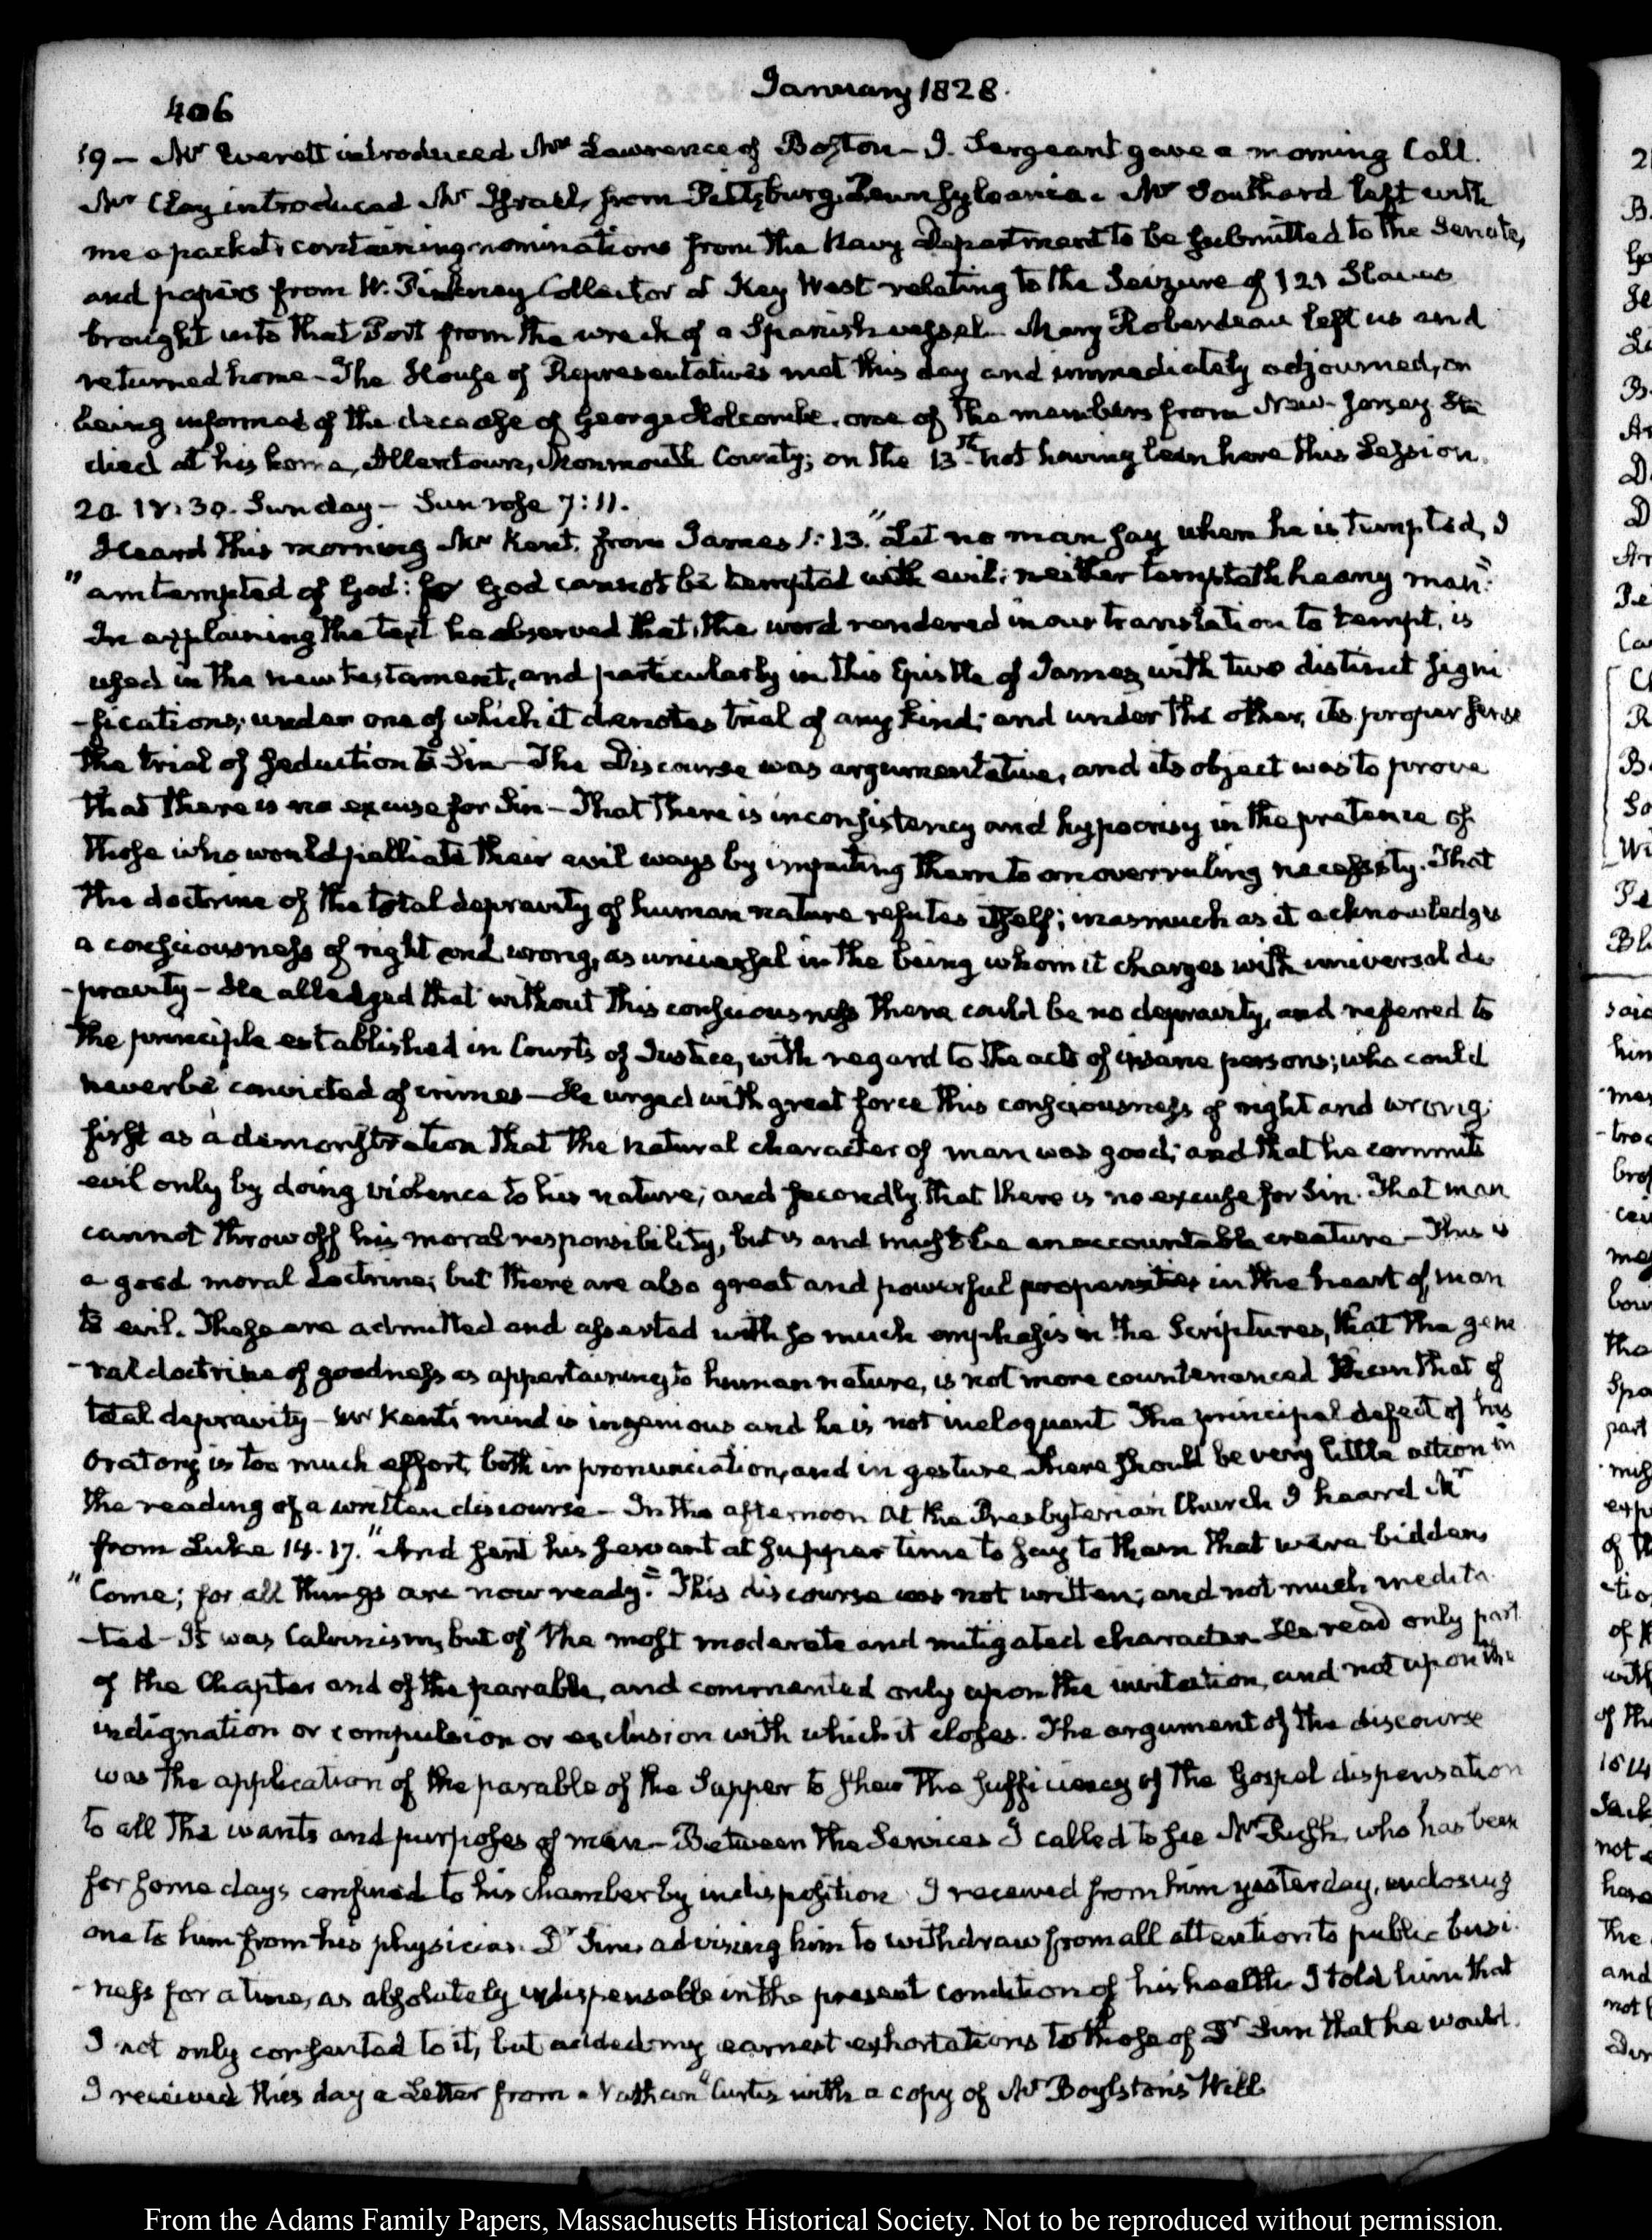 January 1828.
406
19 — Mr Everett introduced Mr Lawrence of Boston — J. Sergeant gave a morning Call.
Mr Clay introduced Mr Israel, from Pittsburg, Pennsylvania. Mr Southard left with
me a packet, containing nominations from the Navy Department to be submitted to the Senate,
and papers from W. Pinkney Collector at Key West relating to the Seizure of 121 Slaves
brought into that Port from the wreck of a Spanish vessel. Mary Roberdeau left us and
returned home — The House of Representatives met this day and immediately adjourned, on
being informed of the decease of George Holcombe, one of the members from New-Jersey. He
died at his home, Allentown, Monmouth County; on the 13th not having been here this Session.
20. IV:30. Sunday — Sun rose 7:11.
Heard this morning Mr Kent, from James 1:13. "Let no man say when he is tempted, I
"am tempted of God: for God cannot be tempted with evil; neither tempteth he any man".
In explaining the text he observed that, the word rendered in our translation to tempt, is
used in the new testament, and particularly in this Epistle of James, with two distinct signi
-fications; under one of which it denotes trial of any kind; and under the other, its proper sense
the trial of seduction to Sin — The Discourse was argumentative, and its object was to prove
that there is no excuse for Sin — That there is inconsistency and hypocrisy in the pretence of
those who would palliate their evil ways by imputing them to an overruling necessity. That
the doctrine of the total depravity of human nature refutes itself; inasmuch as it acknowledges
a consciousness of right and wrong, as universal in the being whom it charges with universal de
-pravity — He alledged that without this consciousness there could be no depravity, and referred to
the principle established in Courts of Justice, with regard to the acts of insane persons; who could
never be convicted of crimes — He urged with great force this consciousness of right and wrong;
first as a demonstration that the natural character of man was good; and that he commits
evil only by doing violence to his nature; and secondly, that there is no excuse for Sin. That man
cannot throw off his moral responsibility, but is and must be an accountable creature — This is
a good moral doctrine; but there are also great and powerful propensities in the heart of man
to evil. These are admitted and asserted with so much emphasis in the Scriptures, that the gene
-ral doctrine of goodness as appertaining to human nature, is not more countenanced than that of
total depravity — Mr Kent's mind is ingenious and he is not ineloquent. The principal defect of his
Oratory is too much effort, both in pronunciation, and in gesture. There should be very little action in
the reading of a written discourse — In the afternoon at the Presbyterian Church I heard Mr
from Luke 14. 17. "And sent his servant at supper time to say to them that were bidden,
"Come; for all things are now ready." This discourse was not written; and not much medita
-ted — It was Calvinism, but of the most moderate and mitigated character. He read only part
of the Chapter and of the parable, and commented only upon the invitation, and not upon the
indignation or compulsion or exclusion with which it closes. The argument of the discourse
was the application of the parable of the Supper to shew the sufficiency of the Gospel dispensation
to all the wants and purposes of man — Between the Services I called to see Mr Rush, who has been
for some days confined to his chamber by indisposition I received from him yesterday, enclosing
one to him from his physician Dr Sim, advising him to withdraw from all attention to public busi
-ness for a time, as absolutely indispensable in the present condition of his health I told him that
I not only consented to it, but added my earnest exhortations to those of Dr Sim that he would.
I received this day a Letter from Nathan Curtis with a copy of Mr Boylston's Will
From the Adams Family Papers, Massachusetts Historical Society. Not to be reproduced without permission.